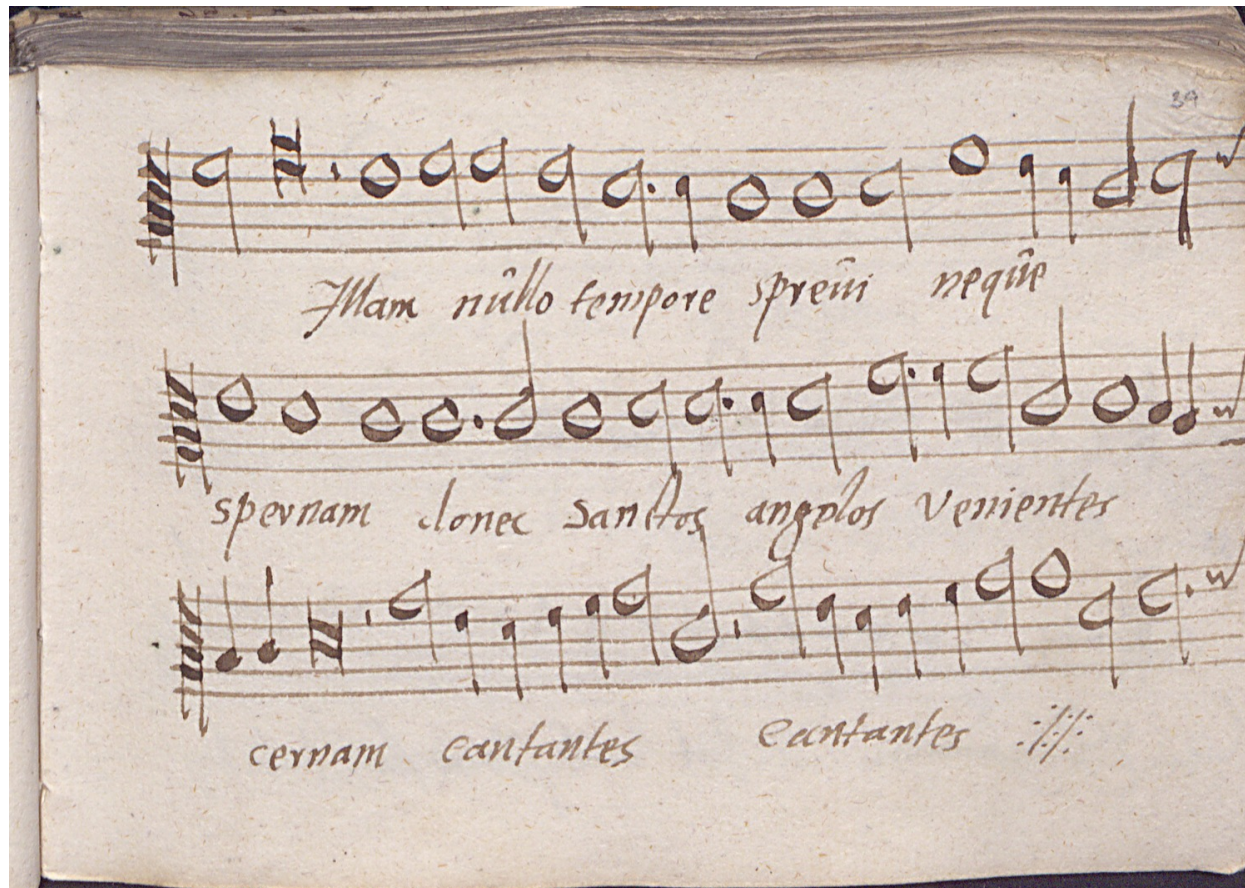 39
Illam nûllo tempore spreûi neqûe
spernam donec Sanctos angelos venientes
cernam cantantes cantantes :/:/: